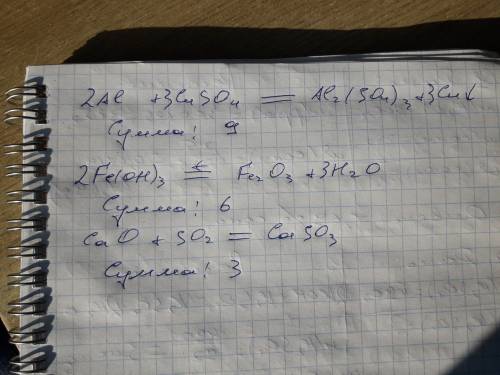 2Al + 3CuSO₄ = Al₂(SO₄)₃ + 3Cu↓
Сумма: 9
2Fe(OH)₃ =ᵗ Fe₂O₃ + 3H₂O
Сумма: 6
CaO + SO₂ = CaSO₃
Сумма: 3